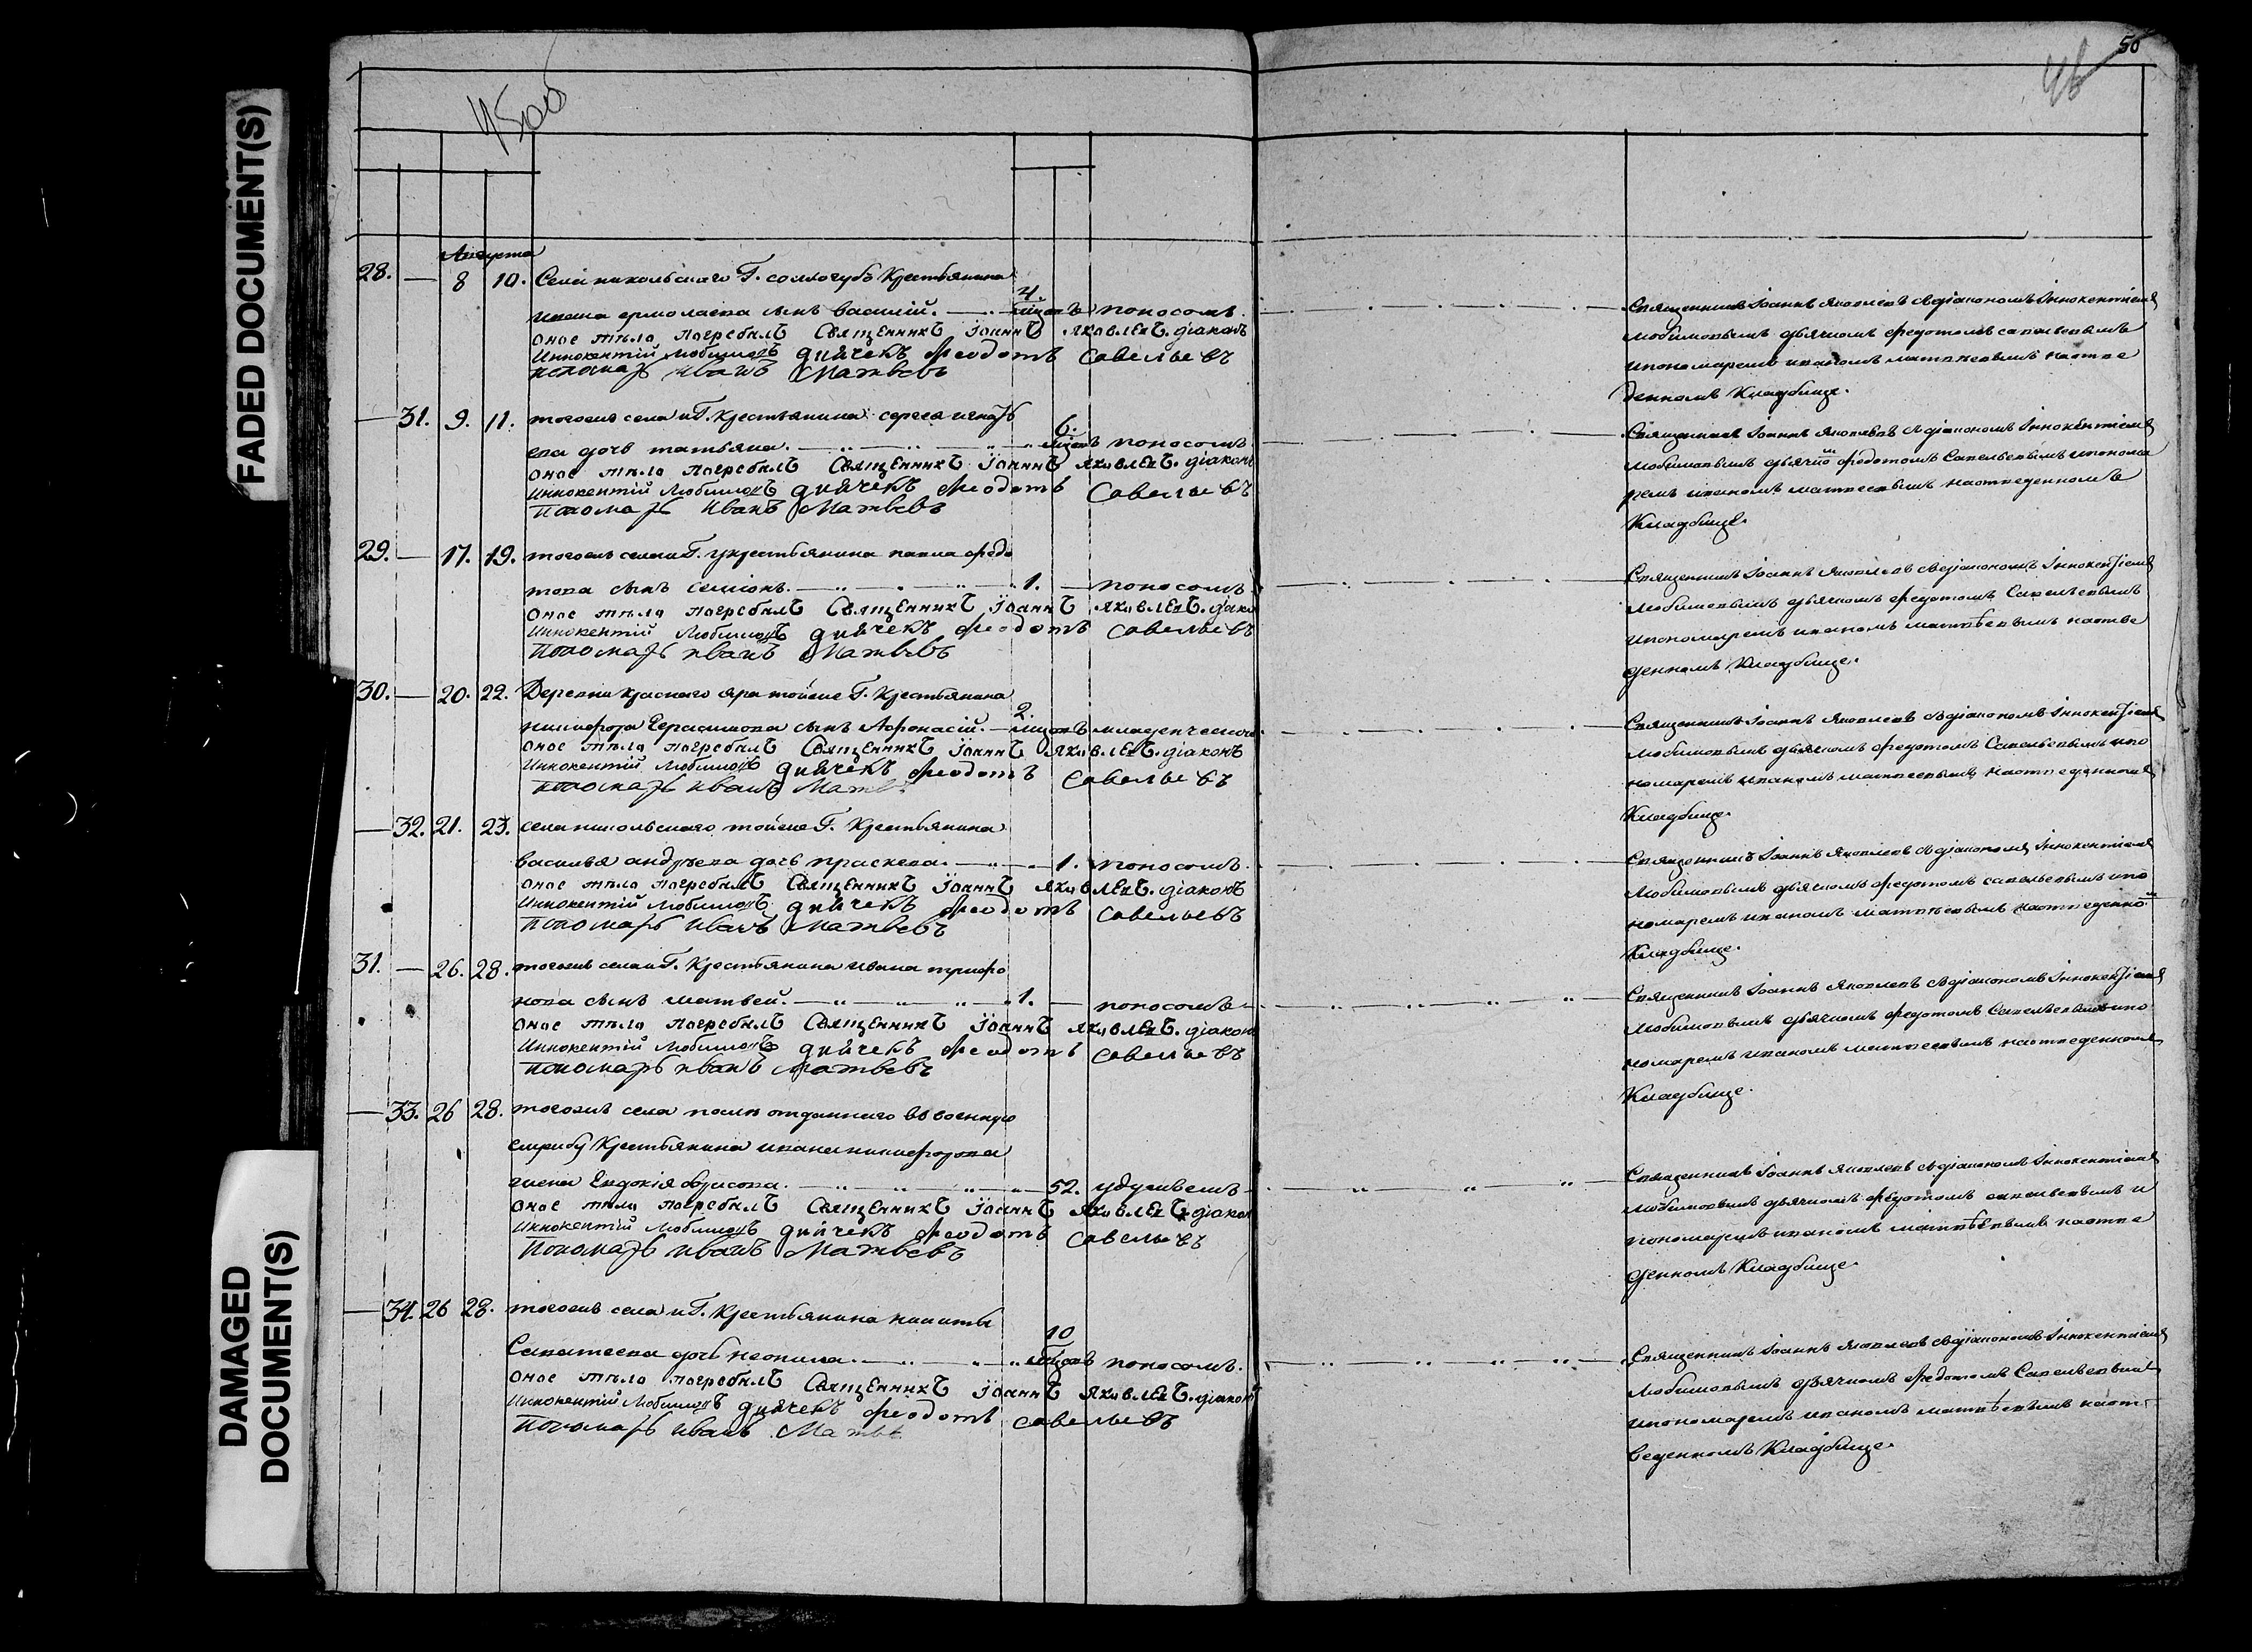 FADED DOCUMENT(S)
DAMAGED
DOCUMENT(S)
45 об
50
46
Августа
28. — 8 10. Села никольскаго Г. соллогубъ Крестьянина
ивана ермолаева сынъ василій. 4 мѣсяцовъ поносомъ.
оное тѣло погребалъ Священникъ Іоаннъ яковлевъ. діаконъ
Иннокентій Любимовъ дьячекъ феодотъ савельевъ
пономарь иванъ Матвеевъ
Священникъ Іоаннъ Яковлевъ съ діакономъ Іннокентіемъ
любимовымъ дьячкомъ федотомъ савельевымъ
ипономаремъ иваномъ матвѣевымъ наотве
денномъ Кладбище.
— 31. 9. 11. тогожъ села и Г. крестьянина сергея игнать
ева дочь татьяна. 6. мѣсяцъ поносомъ
оное тѣло погребалъ Священникъ Іоаннъ яковлевъ. діаконъ
Иннокентій Любимовъ дьячекъ феодотъ Савельевъ
Пономарь Иванъ Матвеевъ
Священникъ Іоаннъ Яковлевъ съ діакономъ Іннокентіемъ
любимовымъ дьячкомъ федотомъ Савельевымъ ипонома
ремъ иваномъ матвеевымъ наотведенномъ
Кладбище.
29. — 17. 19. тогожъ села и Г. крестьянина павла федо
това сынъ семіонъ. 1. — поносомъ
оное тѣло погребалъ Священникъ Іоаннъ яковлевъ. діако
Иннокентій Любимовъ дьячекъ феодотъ савельевъ
Пономарь иванъ Матвеевъ
Священникъ Іоаннъ Яковлевъ съ діакономъ Іннокентіемъ
любимовымъ дьячкомъ федотомъ Савельевымъ
ипономаремъ иваномъ матвѣевымъ наотве
денномъ Кладбище.
30. — 20. 22. Деревни краснаго яра тойже Г. Крестьянина
никифора Герасимова сынъ Афонасій. 2. мѣсяцовъ младенческою
оное тѣло погребалъ Священникъ Іоаннъ яковлевъ. діаконъ
Иннокентій Любимовъ дьячекъ феодотъ Савельевъ
пономарь иванъ Матве
Священникъ Іоаннъ Яковлевъ съ діакономъ Іннокентіемъ
любимовымъ дьячкомъ федотомъ Савельевымъ ипо
номаремъ иваномъ матвеевымъ наотведенномъ
Кладбище.
— 32. 21. 23. села никольскаго тойже Г. Крестьянина
василья андрѣева дочь праскева. 1. поносомъ.
оное тѣло погребалъ Священникъ Іоаннъ яковлевъ. діаконъ
Иннокентій Любимовъ дьячекъ феодотъ савельевъ
Пономарь иванъ Матвеевъ
Священникъ Іоаннъ Яковлевъ съ діакономъ Іннокентіемъ
любимовымъ дьячкомъ федотомъ савельевымъ ипо
номаремъ иваномъ матвѣевымъ наотведенно
Кладбище.
31. — 26. 28. тогожъ села и Г. Крестьянина ивана трифо
нова сынъ матвей. 1. — поносомъ
оное тѣло погребалъ Священникъ Іоаннъ яковлевъ. діаконъ
Иннокентій Любимовъ дьячекъ феодотъ савельевъ
пономарь иванъ Матвеевъ
Священникъ Іоаннъ Яковлевъ съ діакономъ Іннокентіемъ
любимовымъ дьячкомъ федотомъ Савельевымъ ипо
номаремъ иваномъ матвеевымъ наотведенномъ
Кладбище.
— 33. 26 28. тогожъ села отданнаго въ военную
службу Крестьянина ивана никифорова
жена Евдокія борисова. 52. удушьемъ
оное тѣло погребалъ Священникъ Іоаннъ яковлевъ діакон
Иннокентій Любимовъ дьячекъ феодотъ савельевъ
Пономарь иванъ Матвеевъ
Священникъ Іоаннъ Яковлевъ съ діакономъ Іннокентіемъ
любимовымъ дьячкомъ федотомъ савельевымъ и
пономаремъ иваномъ матвѣевымъ наотве
денномъ Кладбище.
— 34. 26 28. тогожъ села и Г. Крестьянина никиты
Саватеева дочь неонила. 10 мѣсяцовъ поносомъ.
оное тѣло погребалъ Священникъ Іоаннъ яковлевъ. діаконъ
Иннокентій Любимовъ дьячекъ феодотъ савельевъ
Пономарь иванъ Матве
Священникъ Іоаннъ Яковлевъ съ діакономъ Іннокентіемъ
любимовымъ дьячкомъ федотомъ Савельевымъ
ипономаремъ иваномъ матвѣевымъ наот
веденномъ Кладбище.